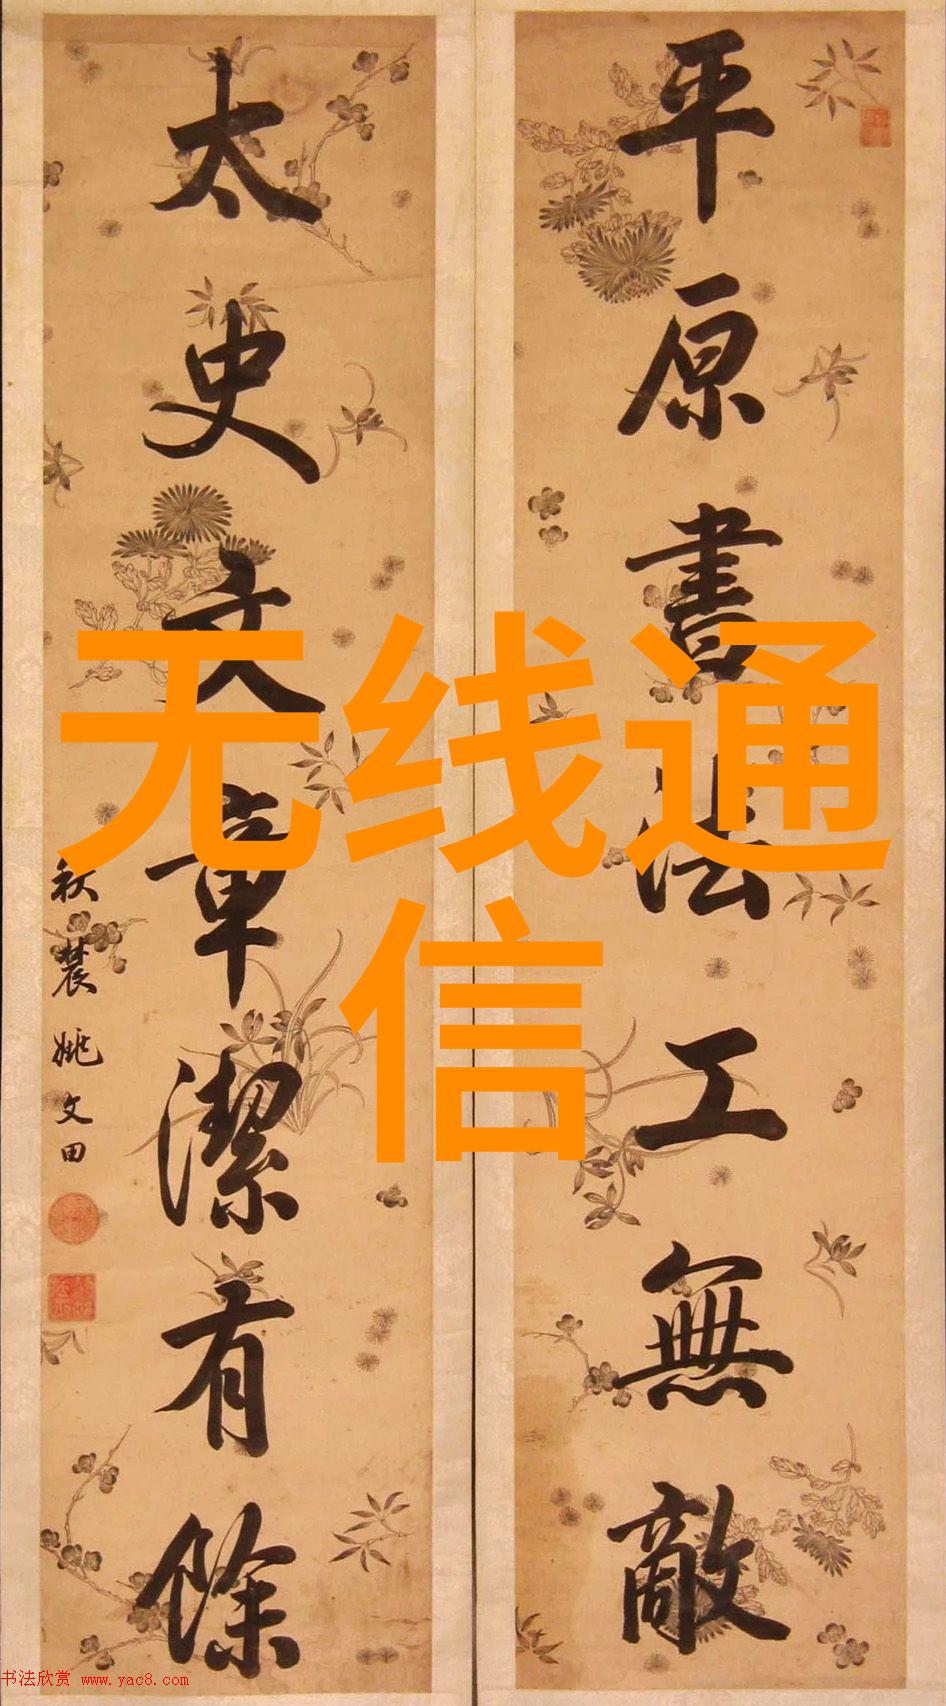 平原書法工無敵
太史文章潔有餘
秋農姚文田
无线通
信
书法欣赏 www.yac8.com